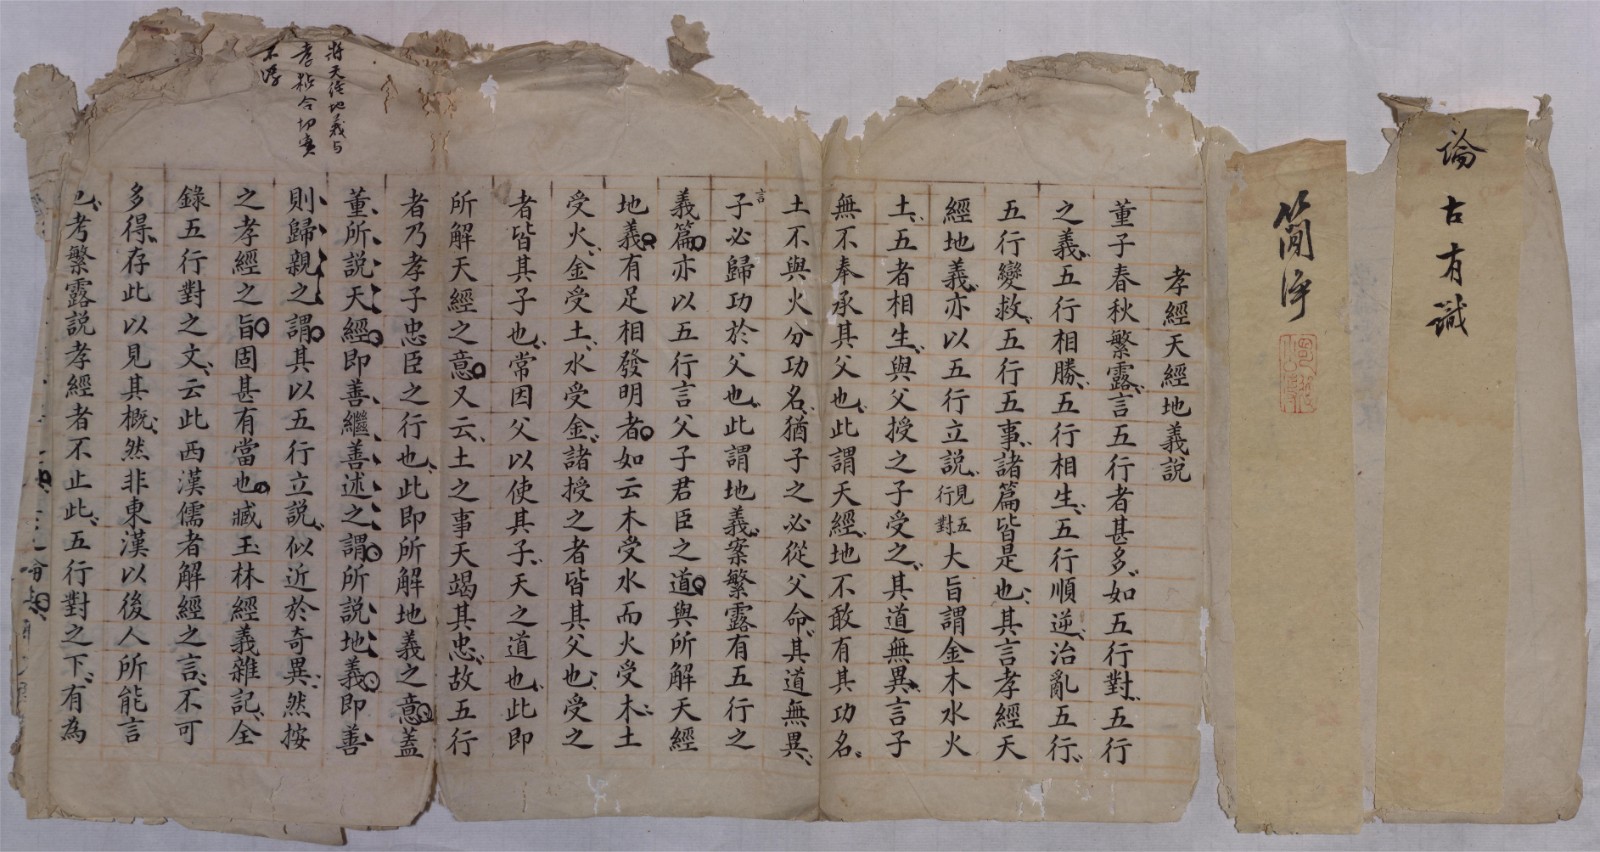 論古有識
簡淨
孝經天經地義説
董子春秋繁露言五行者甚多如五行對五行
之義五行相勝五行相生五行順逆治亂五行
五行變救五行五事諸篇皆是也其言孝經天
經地義亦以五行立説見五行對大旨謂金木水火
土五者相生與父授之子受之其道無異言子
無不奉承其父也此謂天經地不敢有其功名
土不與火分功名猶子之必從父命其道無異
言
子必歸功於父也此謂地義案繁露有五行之
義篇亦以五行言父子君臣之道與所解天經
地義有足相發明者如云木受水而火受木土
受火金受土水受金諸授之者皆其父也受之
者皆其子也常因父以使其子天之道也此即
所解天經之意又云土之事天竭其忠故五行
者乃孝子忠臣之行也此即所解地義之意蓋
董所説天經即善繼善述之謂所説地義即善
則歸親之謂其以五行立説似近於奇異然按
之孝經之旨固甚有當也臧玉林經義雜記全
錄五行對之文云此西漢儒者解經之言不可
多得存此以見其概然非東漢以後人所能言
也考繁露説孝經者不止此五行對之下有為
將天經地義与
孝經合切實
不浮